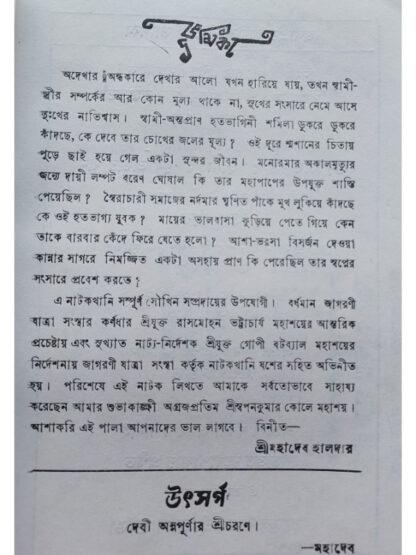 ভূমিকা
অদেখার অন্ধকারে দেখার আলো যখন হারিয়ে যায়, তখন স্বামী-
স্ত্রীর সম্পর্কের আর কোন মূল্য থাকে না, সুখের সংসারে নেমে আসে
দুঃখের নাভিশ্বাস। স্বামী-অন্তপ্রাণ হতভাগিনী শমিলা ডুকরে ডুকরে
কাঁদছে, কে দেবে তার চোখের জলের মূল্য? ওই দূরে শ্মশানের চিতায়
পুড়ে ছাই হয়ে গেল একটা সুন্দর জীবন। মনোরমার অকালমৃত্যুর
জন্যে দায়ী লম্পট বরেণ ঘোষাল কি তার মহাপাপের উপযুক্ত শাস্তি
পেয়েছিল? স্বৈরাচারী সমাজের নর্দমার ঘৃণিত পাঁকে মুখ লুকিয়ে কাঁদছে
কে ওই হতভাগ্য যুবক? মায়ের ভালবাসা কুড়িয়ে পেতে গিয়ে কেন
তাকে বারবার কেঁদে ফিরে যেতে হলো? আশা-ভরসা বিসর্জন দেওয়া
কান্নার সাগরে নিমজ্জিত একটা অসহায় প্রাণ কি পেরেছিল তার স্বপ্নের
সংসারে প্রবেশ করতে?
এ নাটকখানি সম্পূর্ণ সৌখিন সম্প্রদায়ের উপযোগী। বর্ধমান জাগরণী
যাত্রা সংস্থার কর্ণধার শ্রীযুক্ত রাসমোহন ভট্টাচার্য মহাশয়ের আন্তরিক
প্রচেষ্টায় এবং সুখ্যাত নাট্য-নির্দেশক শ্রীযুক্ত গোপী বটব্যাল মহাশয়ের
নির্দেশনায় জাগরণী যাত্রা সংস্থা কর্তৃক নাটকখানি যশের সহিত অভিনীত
হয়। পরিশেষে এই নাটক লিখতে আমাকে সর্বতোভাবে সাহায্য
করেছেন আমার শুভাকাঙ্ক্ষী অগ্রজপ্রতিম শ্রীস্বপনকুমার কোলে মহাশয়।
আশাকরি এই পালা আপনাদের ভাল লাগবে। বিনীত—
শ্রীমহাদেব হালদার
উৎসর্গ
দেবী অন্নপূর্ণার শ্রীচরণে।
—মহাদেব